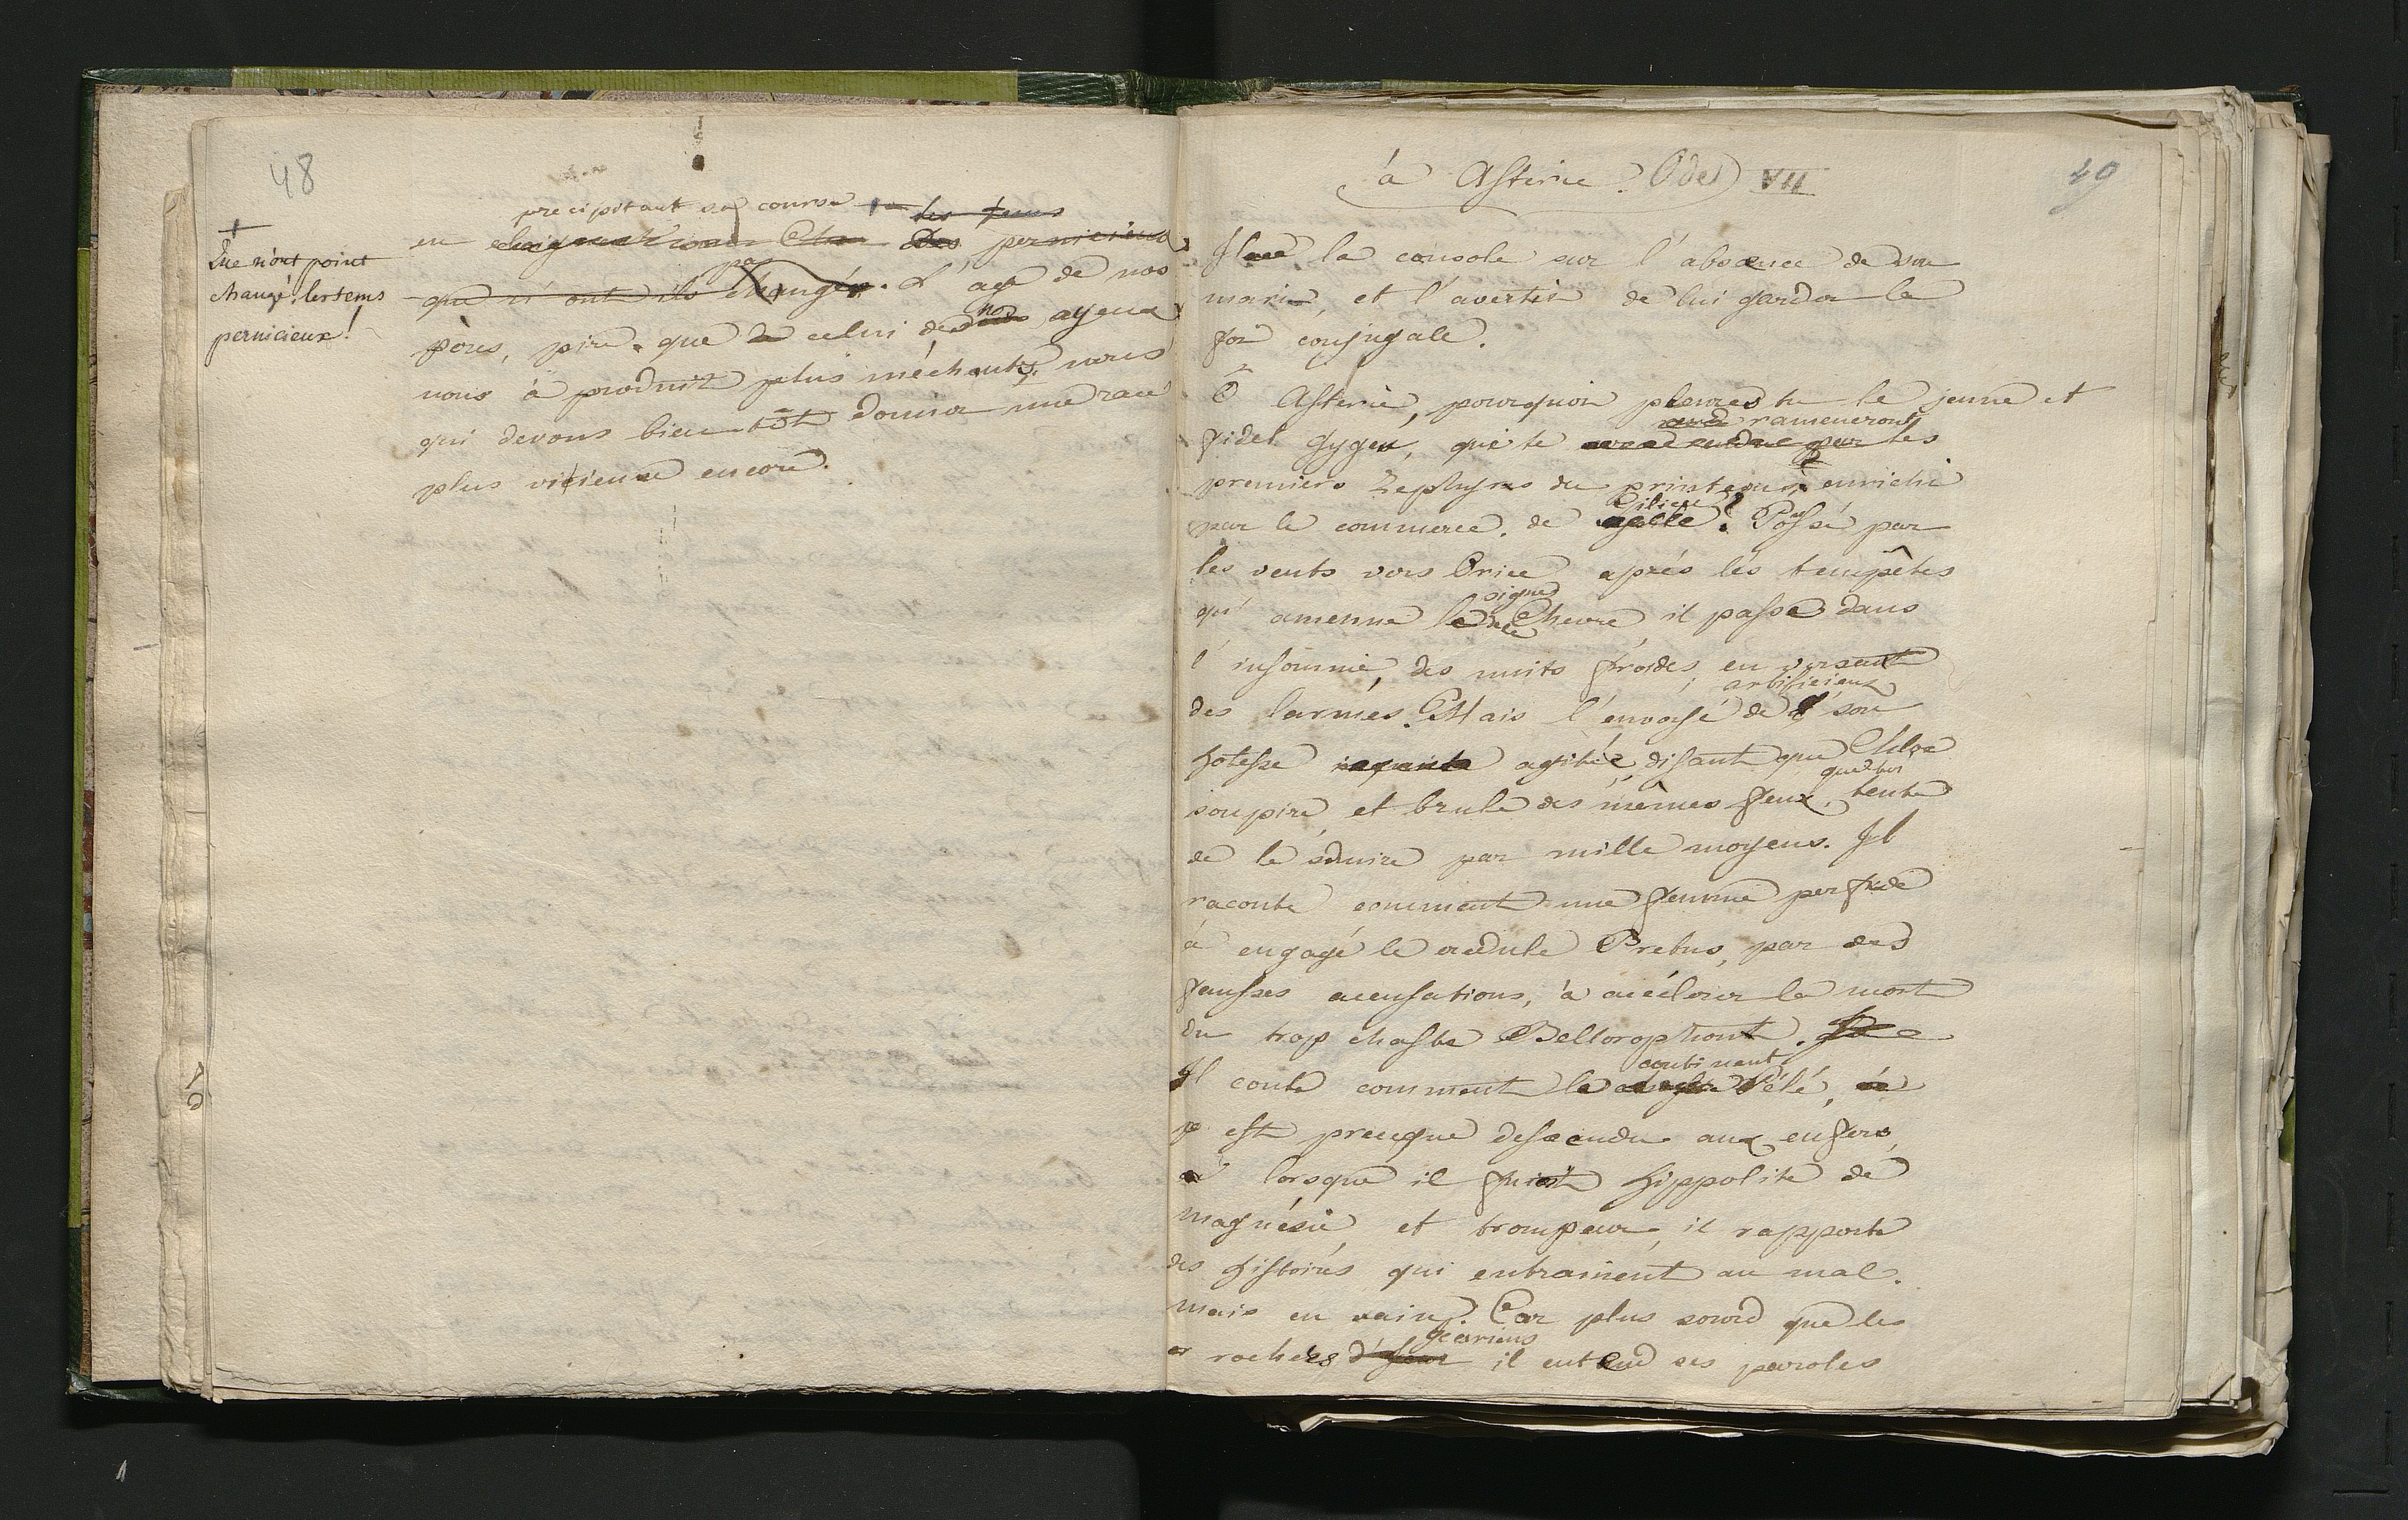 48
†
Que n'ont point
changé les tems
pernicieux!
précipitant sa course les tems
en pernicieux
pas
que n'ont ils changés. L'age de nos
pères, pire que celui de nos ayeux
nous à produit plus méchants, nous
qui devons bientôt donner une race
plus vicieuse encore.
49
à Asterie. Ode VII
Il la console sur l'absence de son
mari, et l'avertit de lui garder la
foi conjugale.
ô Asterie, pourquoi pleures tu le jeune et
rameneront
fidel Gygex, que te les
premiers Zephyrs du printems, enrichi
Cilicie
par le commerce de ? Possé par
les vents vers Orice après les tempêtes
signe
qu'amenne le de Chevre, il passe dans
l'insomnie, des nuits froides, en versant
artificieux
des larmes. Mais l'envoyé de son
hotesse agitée, disant que Chloe
que toi
soupire, et brule des mêmes feux, tente
de le séduire par mille moyens. Il
raconte comment une femme perfide
à engagé le credule Pretus, par des
fausses accusations, à accélerer la mort
du trop chaste Bellorophont.
continent
Il conte comment le Pelé,
est presque descendu aux enfers,
lorsque il fuioit Hippolite de
magnésie, et trompeur, il rapporte
des histoires qui entrainent au mal.
mais en vain. Car plus sourd que les
Icariens
rochers il entend ses paroles